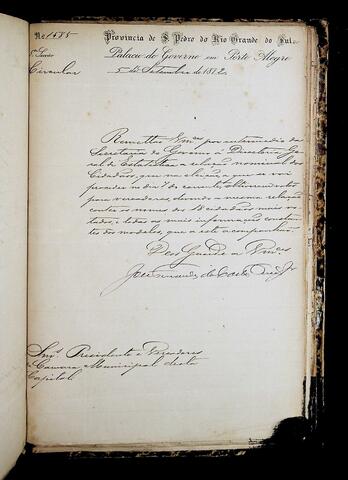 No 1585 Provincia de S. Pedro do Rio Grande do Sul.
Palacio do Governo em Porto Alegre
Circular 5 de Setembro de 1872.
Remettão Vmces por intermedio da
Secretaria do Governo a Directoria Ge-
ral de Estatistica a relação nominal dos
Cidadãos, que na eleição, a que se vai
proceder no dia 7 do corrente obtiverem votos
para vereadores, devendo a mesma relação
conter os nomes dos
tados, e todas as mais informações constan-
tes dos modelos, que a esta acompanham.
Deos Guarde a Vmces
José Fernandes da Costa Pereira Jr
Snrs. Presidente e Vereadores
da Camara Municipal desta
Capital.